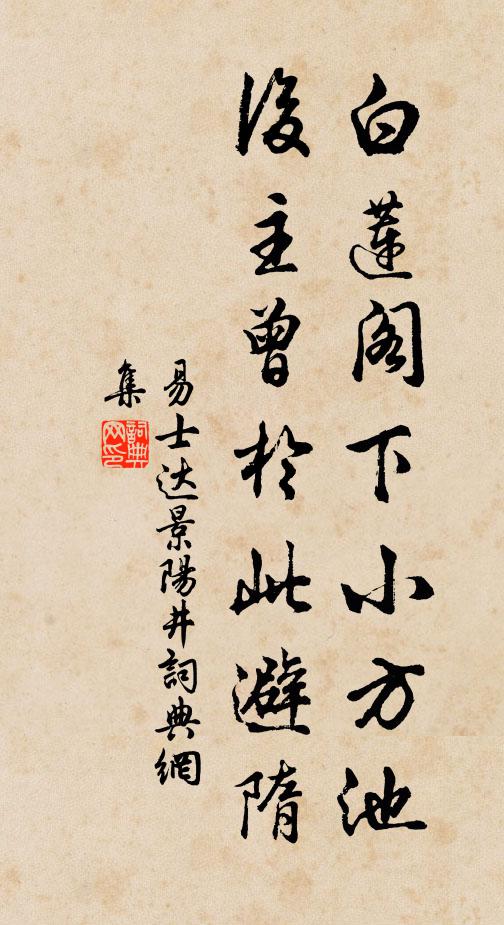 白蓮阁下小方池
後主曾於此避隋
易士达景陽井詞典網
集
詞典
网印